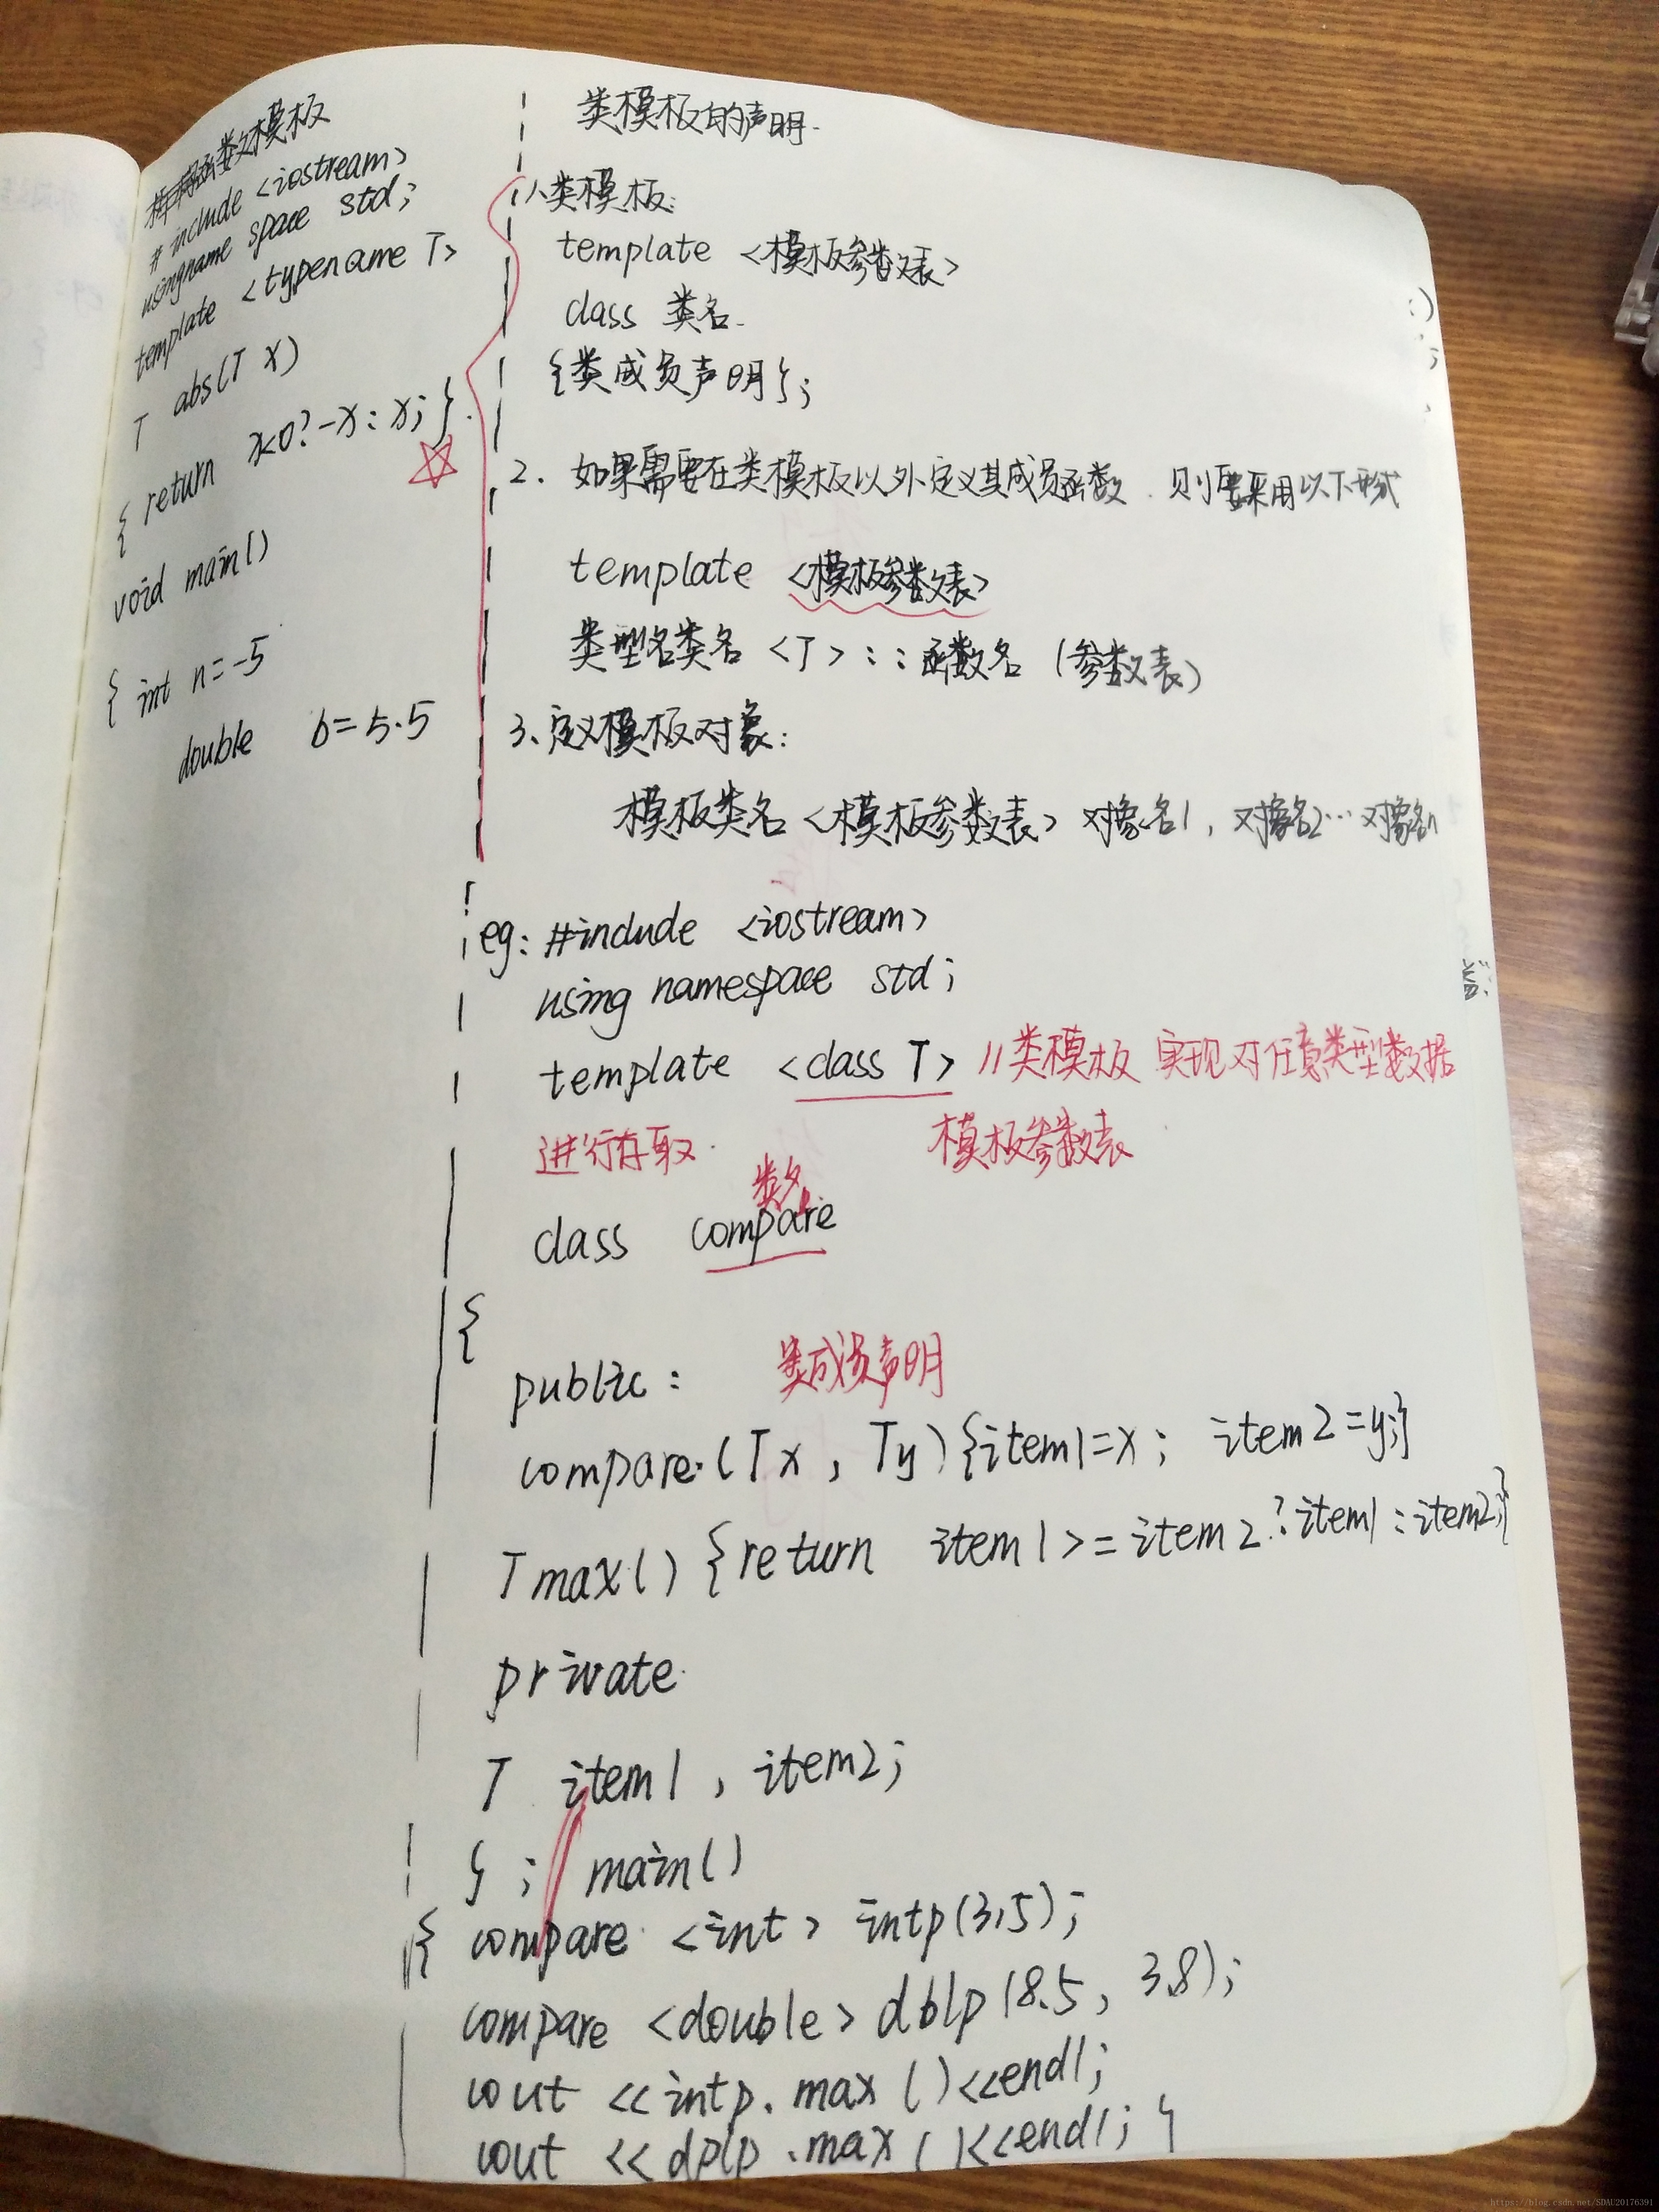 函数模板
# include <iostream>
usingname space std;
template <typename T>
T abs(T x)
{ return x<0?-x:x; }.
void main()
{ int n=-5
double b=5.5
类模板的声明.
1、类模板:
template <模板参数表>
class 类名.
{类成员声明};
2. 如果需要在类模板以外定义其成员函数. 则要采用以下形式
template <模板参数表>
类型名类名 <T>::函数名 (参数表)
3、定义模板对象:
模板类名 <模板参数表> 对象名1, 对象名2…对象名n
eg: #include <iostream>
using namespace std;
template <class T> //类模板 实现对任意类型数据
进行存取. 模板参数表
类名
class compare
{
public: 类成员声明
compare.(T x, T y){item1=x; item2=y;}
T max() {return item1>=item2?item1:item2;}
private.
T item1, item2;
}; main()
{ compare <int> intp(3,5);
compare <double> dblp(8.5, 3.8);
cout <<intp.max()<<endl;
cout << dplp.max()<<endl; }
https://blog.csdn.net/SDAU20176391